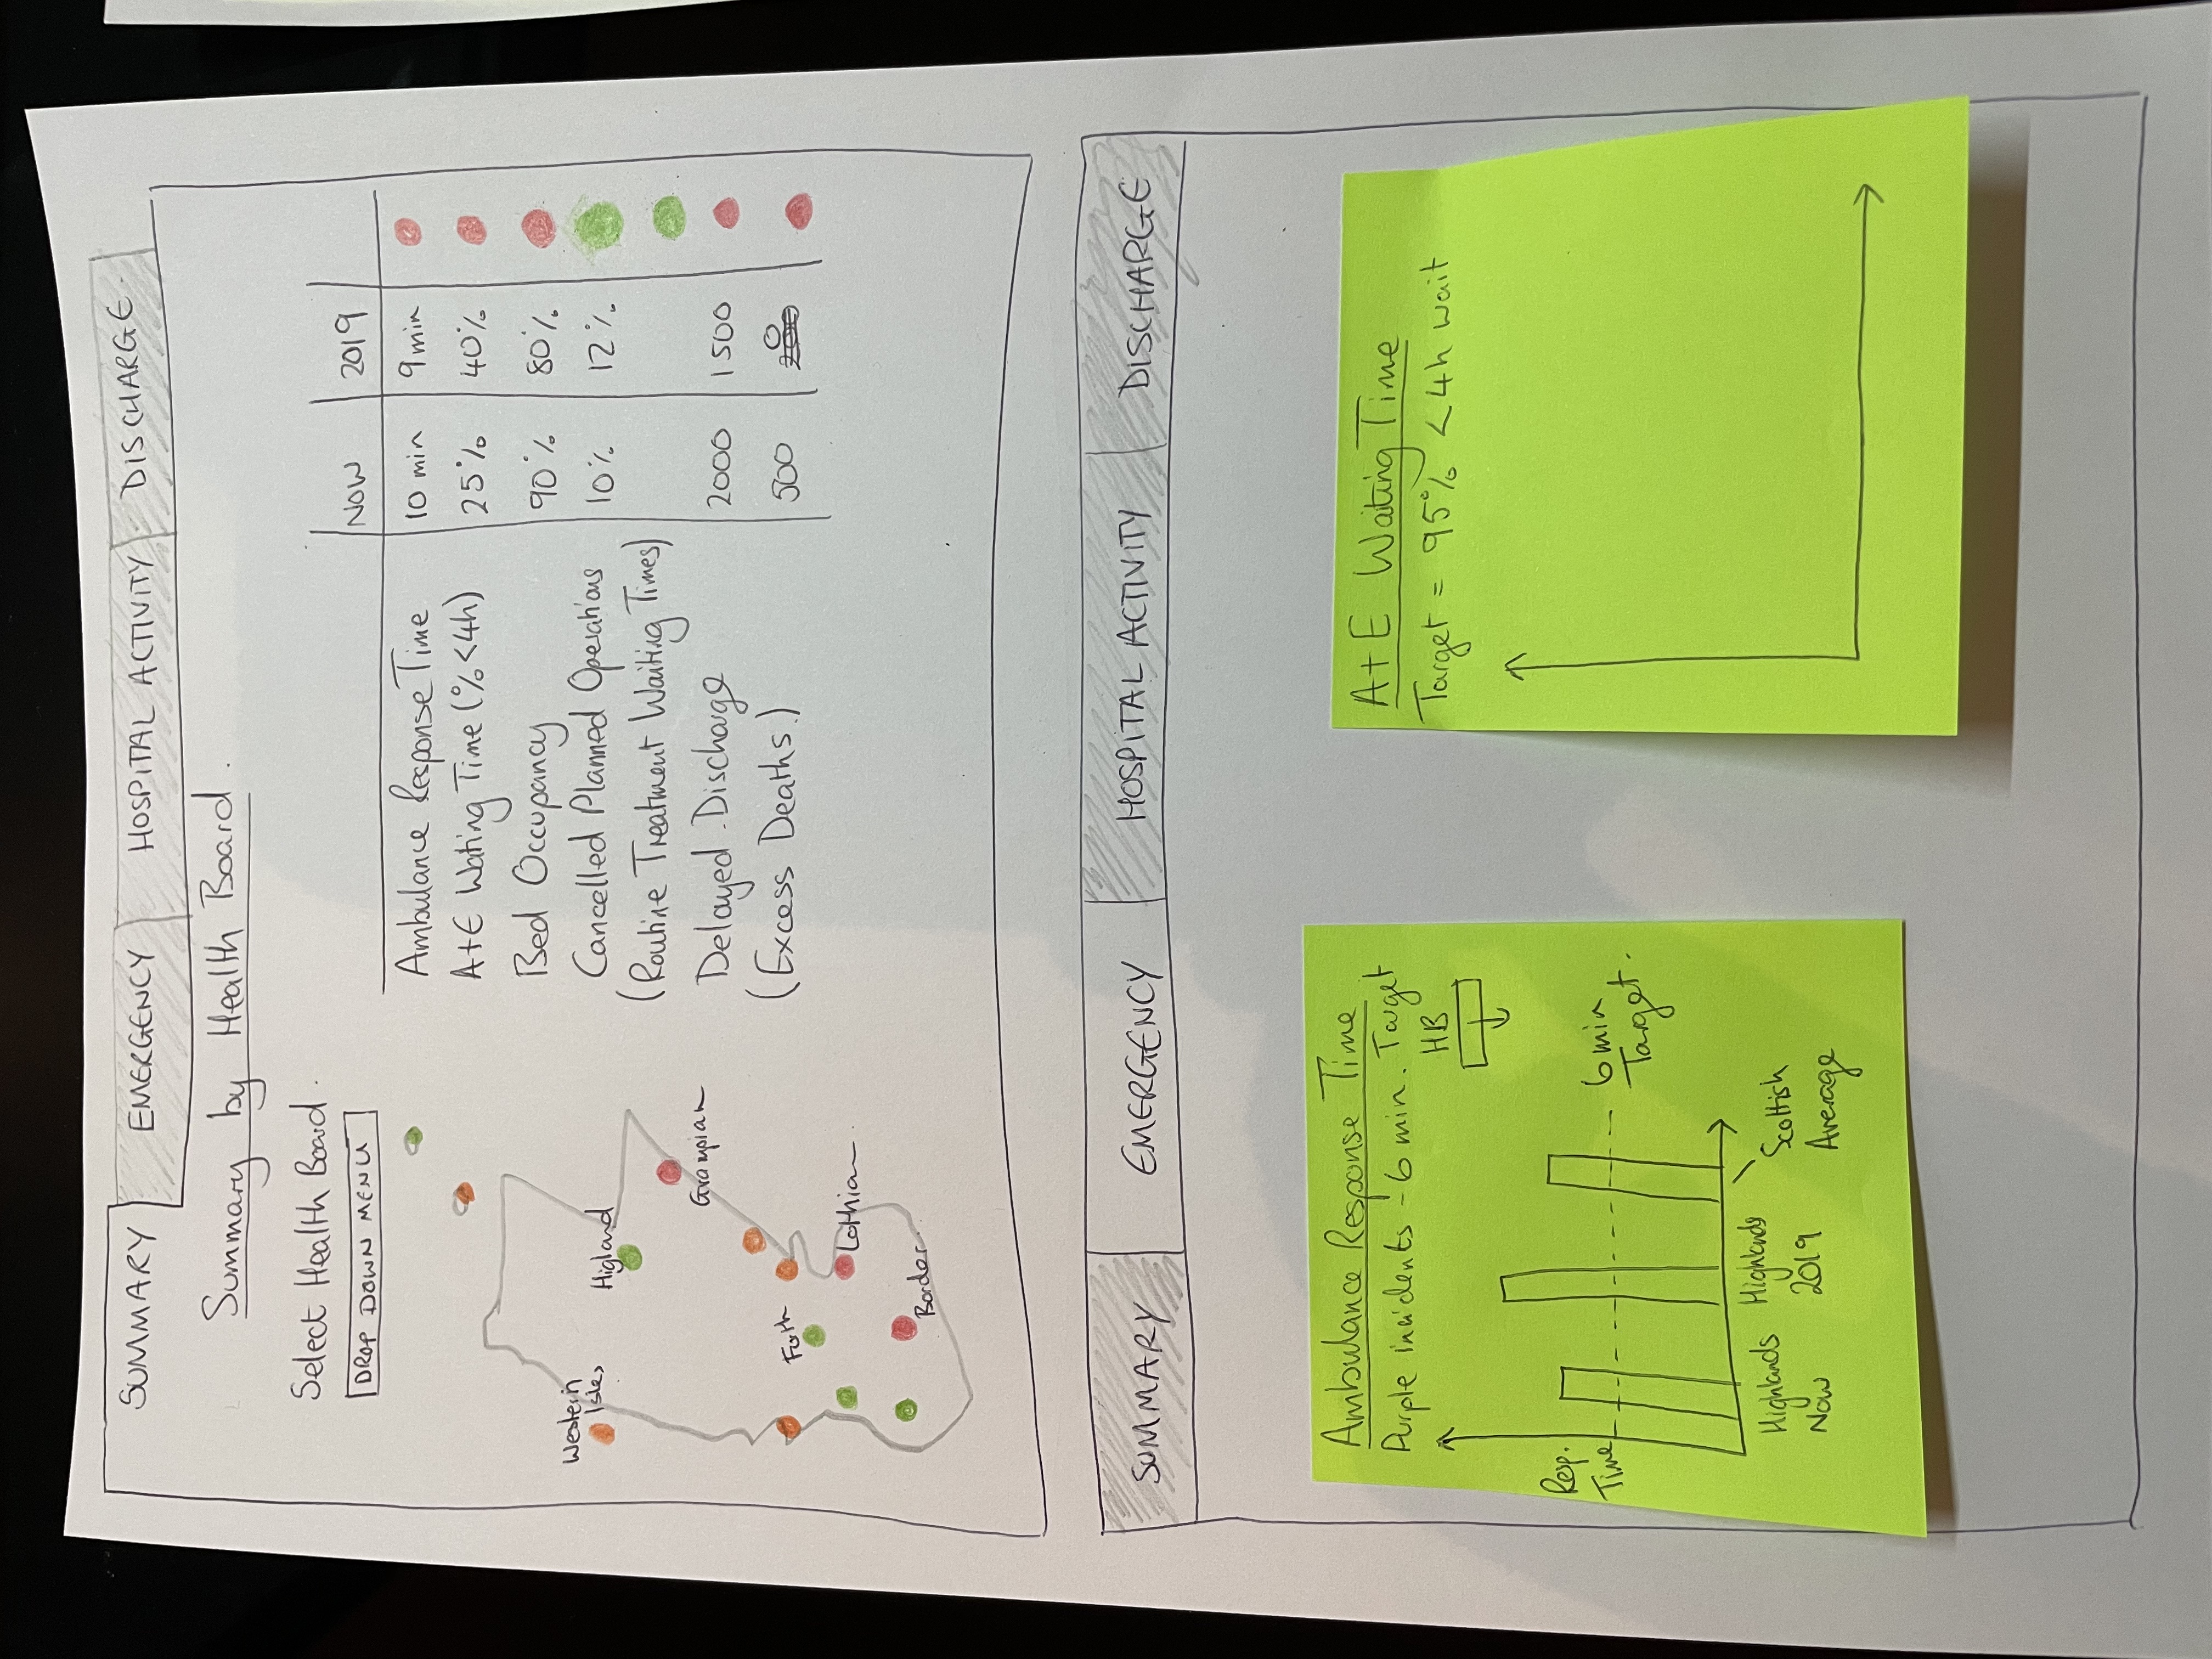 SUMMARY EMERGENCY HOSPITAL ACTIVITY DISCHARGE
Summary by Health Board.
Select Health Board.
DROP DOWN MENU
Western
Isles
Higland
Grampian
Forth
Lothian
Border
NOW 2019
Ambulance Response Time 10 min 9 min
A+E Wating Time (% <4h) 25% 40%
Bed Occupancy 90% 80%
Cancelled Planned Operations 10% 12%
(Routine Treatment Waiting Times)
Delayed Discharge 2000 1500
(Excess Deaths.) 500 0
SUMMARY EMERGENCY HOSPITAL ACTIVITY DISCHARGE
Ambulance Response Time
Purple incidents - 6 min. Target
HB
Resp.
Time
6 min
Target.
Highlands
Now
Highlands
2019
Scottish
Average
A+E Waiting Time
Target = 95% <4h wait